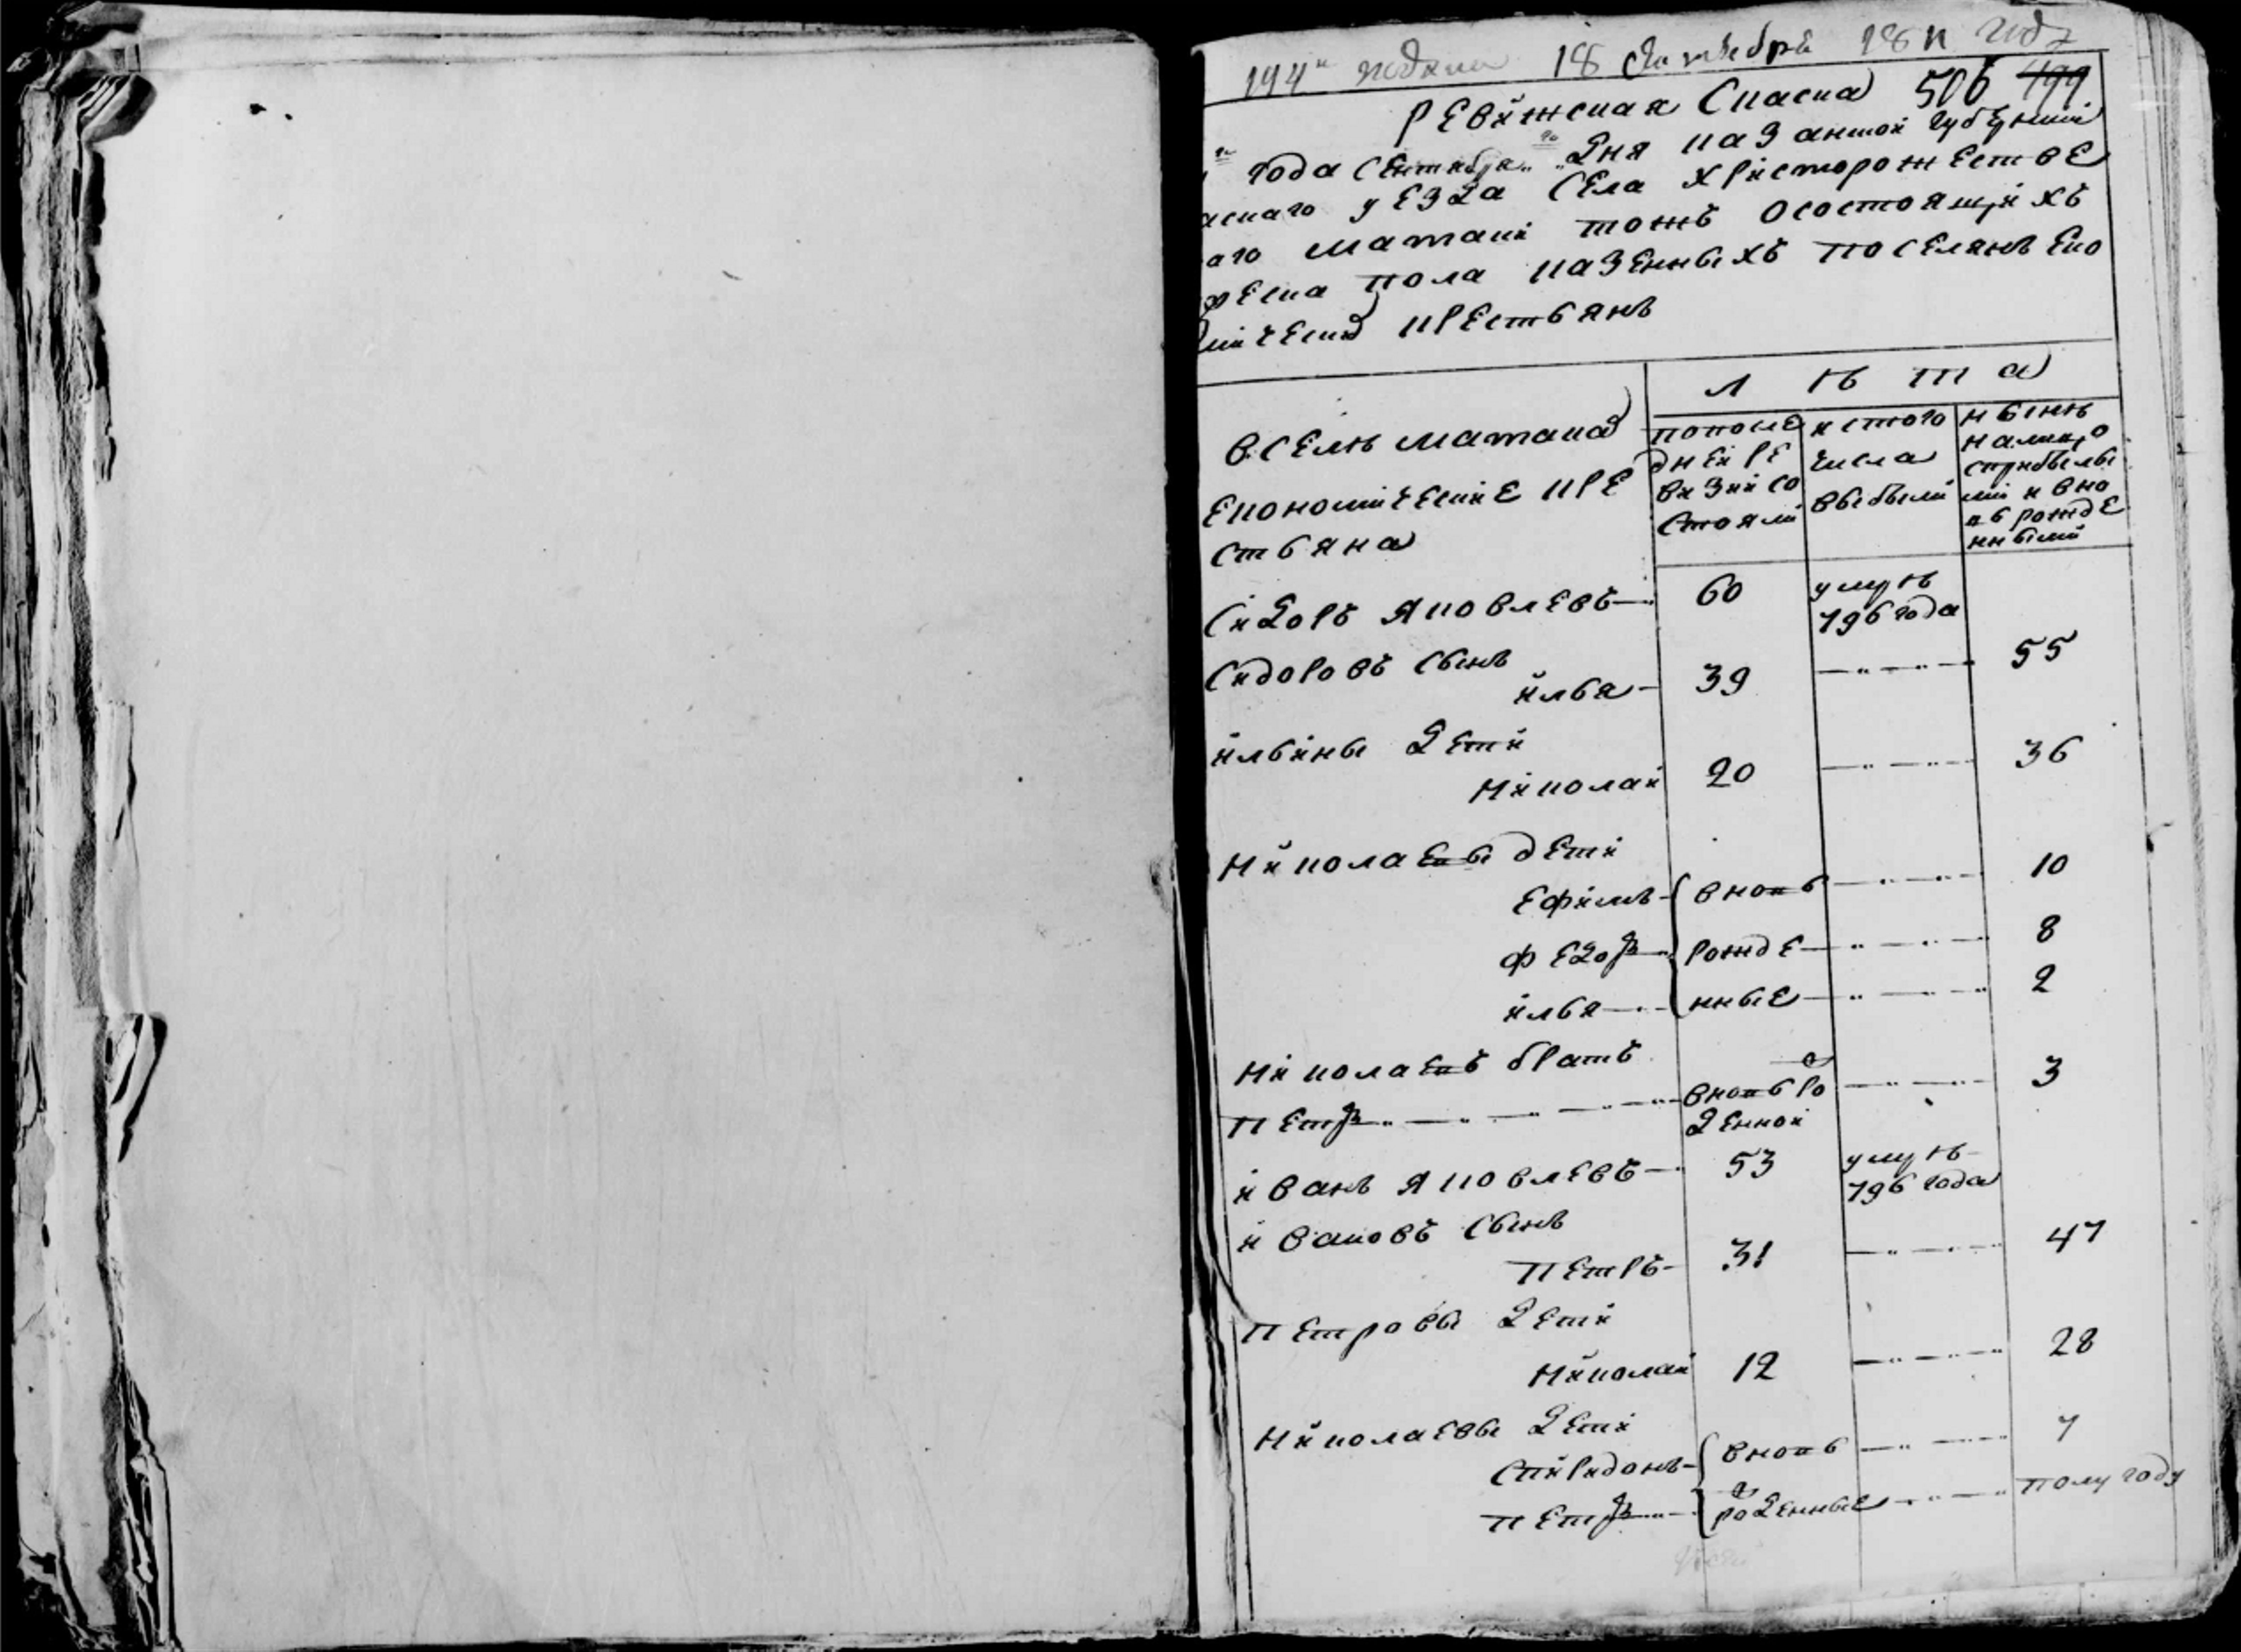 194 подана 18 Октебря 1811 году
Ревижская Скаска 506 499
года Сентября Дня Казанской губернии
аскаго уезда Села христорожестве
аго маткаи тожъ осостоящихъ
песка пола казенныхъ поселянъ Еко
мическихъ крестьянъ
Л ѣ т а
вселѣ маткахъ
Економические кре
стьяна
попосле
дней ре
визии со
стояли
истого
числа
выбыли
нынѣ
налицо
сприбылы
ми и вно
вь рожде
нными
Сидоръ Яковлевъ 60 умрѣ
796 года
Сидоровъ сынъ
илья 39 55
ильины дети
Николай 20 36
Николаевы дети
Ефимъ вновь 10
Федоръ рожде 8
илья нные 2
Николаевъ братъ
Петръ вновь ро 3
жденной
иванъ Яковлевъ 53 умрѣ
796 года
ивановъ сынъ
Петръ 31 47
Петровы дети
Николай 12 28
Николаевы дети
Спиридонъ вновь 7
Петръ рожденные полу году